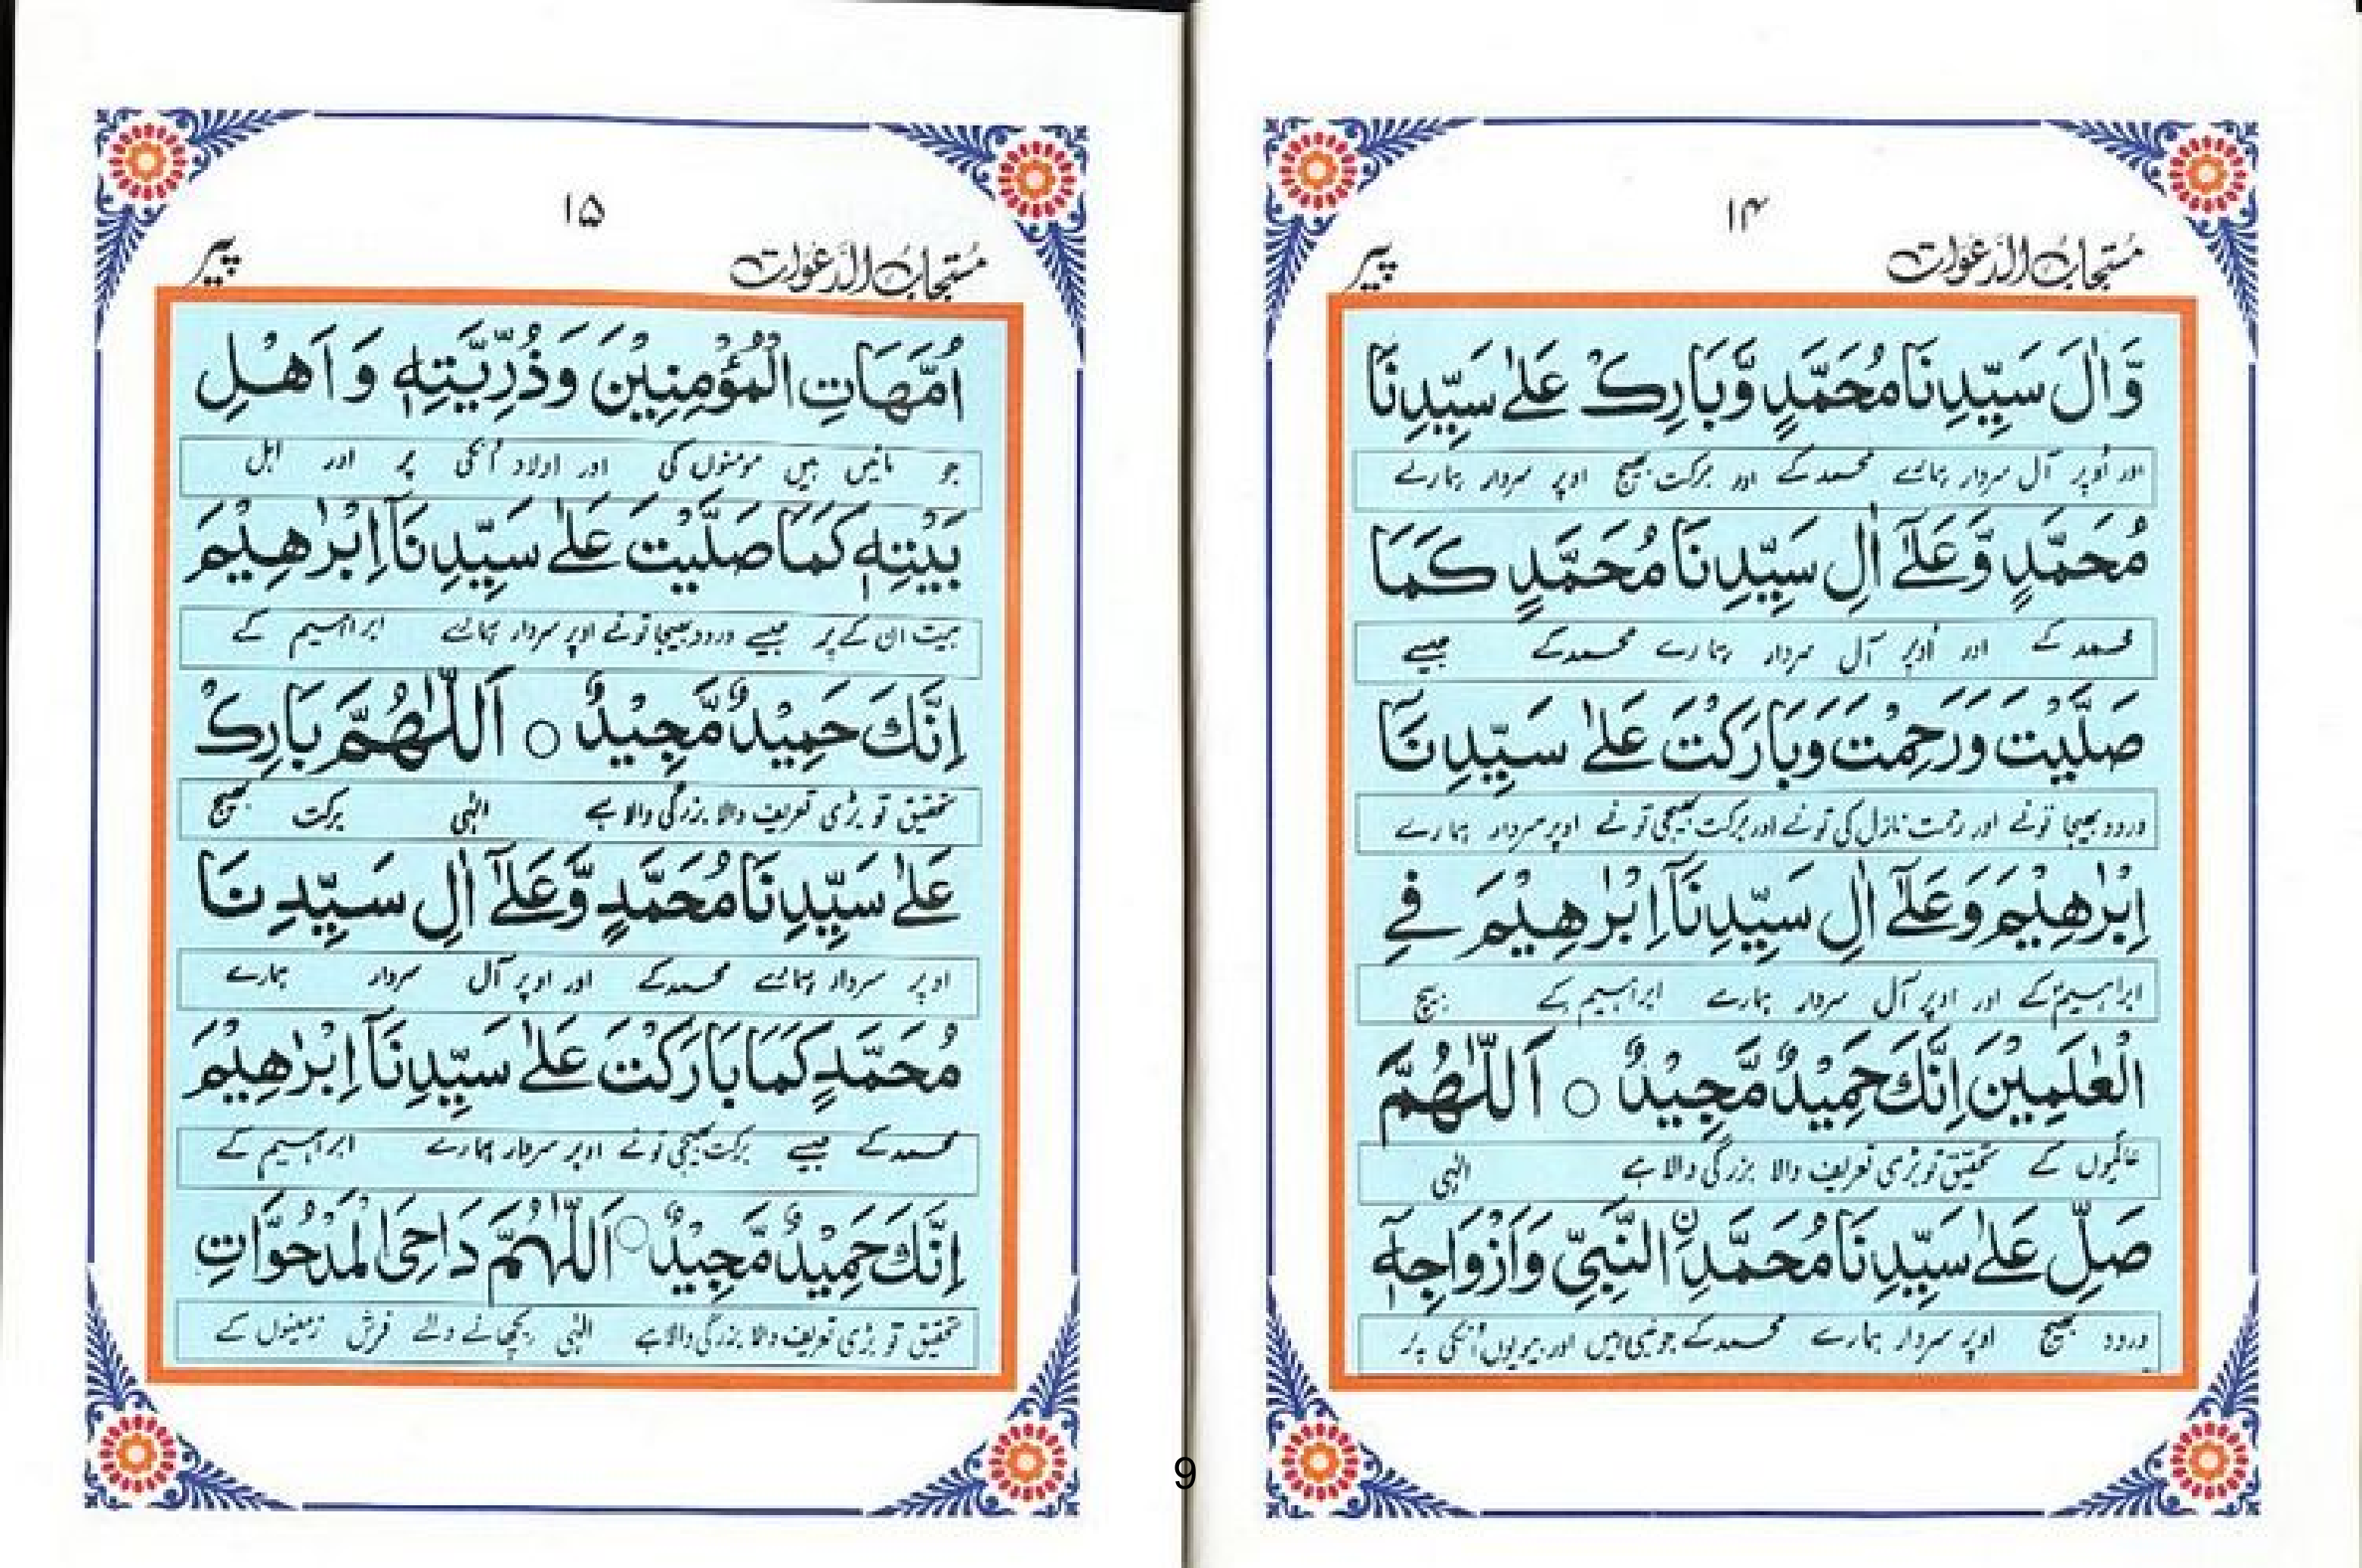 ۱۴
مُستجابُ الدّعوات
پیر
وَّاٰلَ سَيِّدِنَا مُحَمَّدٍ وَّبَارِكْ عَلٰى سَيِّدِنَا
اور اُوپر آل سردار ہمارے محمد کے اور برکت بھیج اوپر سردار ہمارے
مُحَمَّدٍ وَّعَلٰٓى اٰلِ سَيِّدِنَا مُحَمَّدٍ كَمَا
محمد کے اور اُوپر آل سردار ہمارے محمد کے جیسے
صَلَّيْتَ وَرَحِمْتَ وَبَارَكْتَ عَلٰى سَيِّدِنَآ
درود بھیجا تونے اور رحمت نازل کی تونے اور برکت بھیجی تونے اوپر سردار ہمارے
اِبْرٰهِيْمَ وَعَلٰٓى اٰلِ سَيِّدِنَآ اِبْرٰهِيْمَ فِي
ابراہیمؑ کے اور اوپر آل سردار ہمارے ابراہیم کے بیچ
الْعٰلَمِيْنَ اِنَّكَ حَمِيْدٌ مَّجِيْدٌ ○ اَللّٰهُمَّ
عالموں کے تحقیق تو بڑی تعریف والا بزرگی والا ہے الٰہی
صَلِّ عَلٰى سَيِّدِنَا مُحَمَّدِنِ النَّبِيِّ وَاَزْوَاجِهٖٓ
درود بھیج اوپر سردار ہمارے محمد کے جو نبی ہیں اور بیویوں اُنکی پر
۱۵
مُستجابُ الدّعوات
پیر
اُمَّهَاتِ الْمُؤْمِنِيْنَ وَذُرِّيَّتِهٖ وَاَهْلِ
جو مائیں ہیں مومنوں کی اور اولاد اُنکی پر اور اہل
بَيْتِهٖ كَمَا صَلَّيْتَ عَلٰى سَيِّدِنَآ اِبْرٰهِيْمَ
بیت ان کے پر جیسے درود بھیجا تونے اوپر سردار ہمارے ابراہیم کے
اِنَّكَ حَمِيْدٌ مَّجِيْدٌ ○ اَللّٰهُمَّ بَارِكْ
تحقیق تو بڑی تعریف والا بزرگی والا ہے الٰہی برکت بھیج
عَلٰى سَيِّدِنَا مُحَمَّدٍ وَّعَلٰٓى اٰلِ سَيِّدِنَا
اوپر سردار ہمارے محمد کے اور اوپر آل سردار ہمارے
مُحَمَّدٍ كَمَا بَارَكْتَ عَلٰى سَيِّدِنَآ اِبْرٰهِيْمَ
محمد کے جیسے برکت بھیجی تونے اوپر سردار ہمارے ابراہیم کے
اِنَّكَ حَمِيْدٌ مَّجِيْدٌ ○ اَللّٰهُمَّ دَاحِيَ الْمَدْحُوَّاتِ
تحقیق تو بڑی تعریف والا بزرگی والا ہے الٰہی بچھانے والے فرش زمینوں کے
9